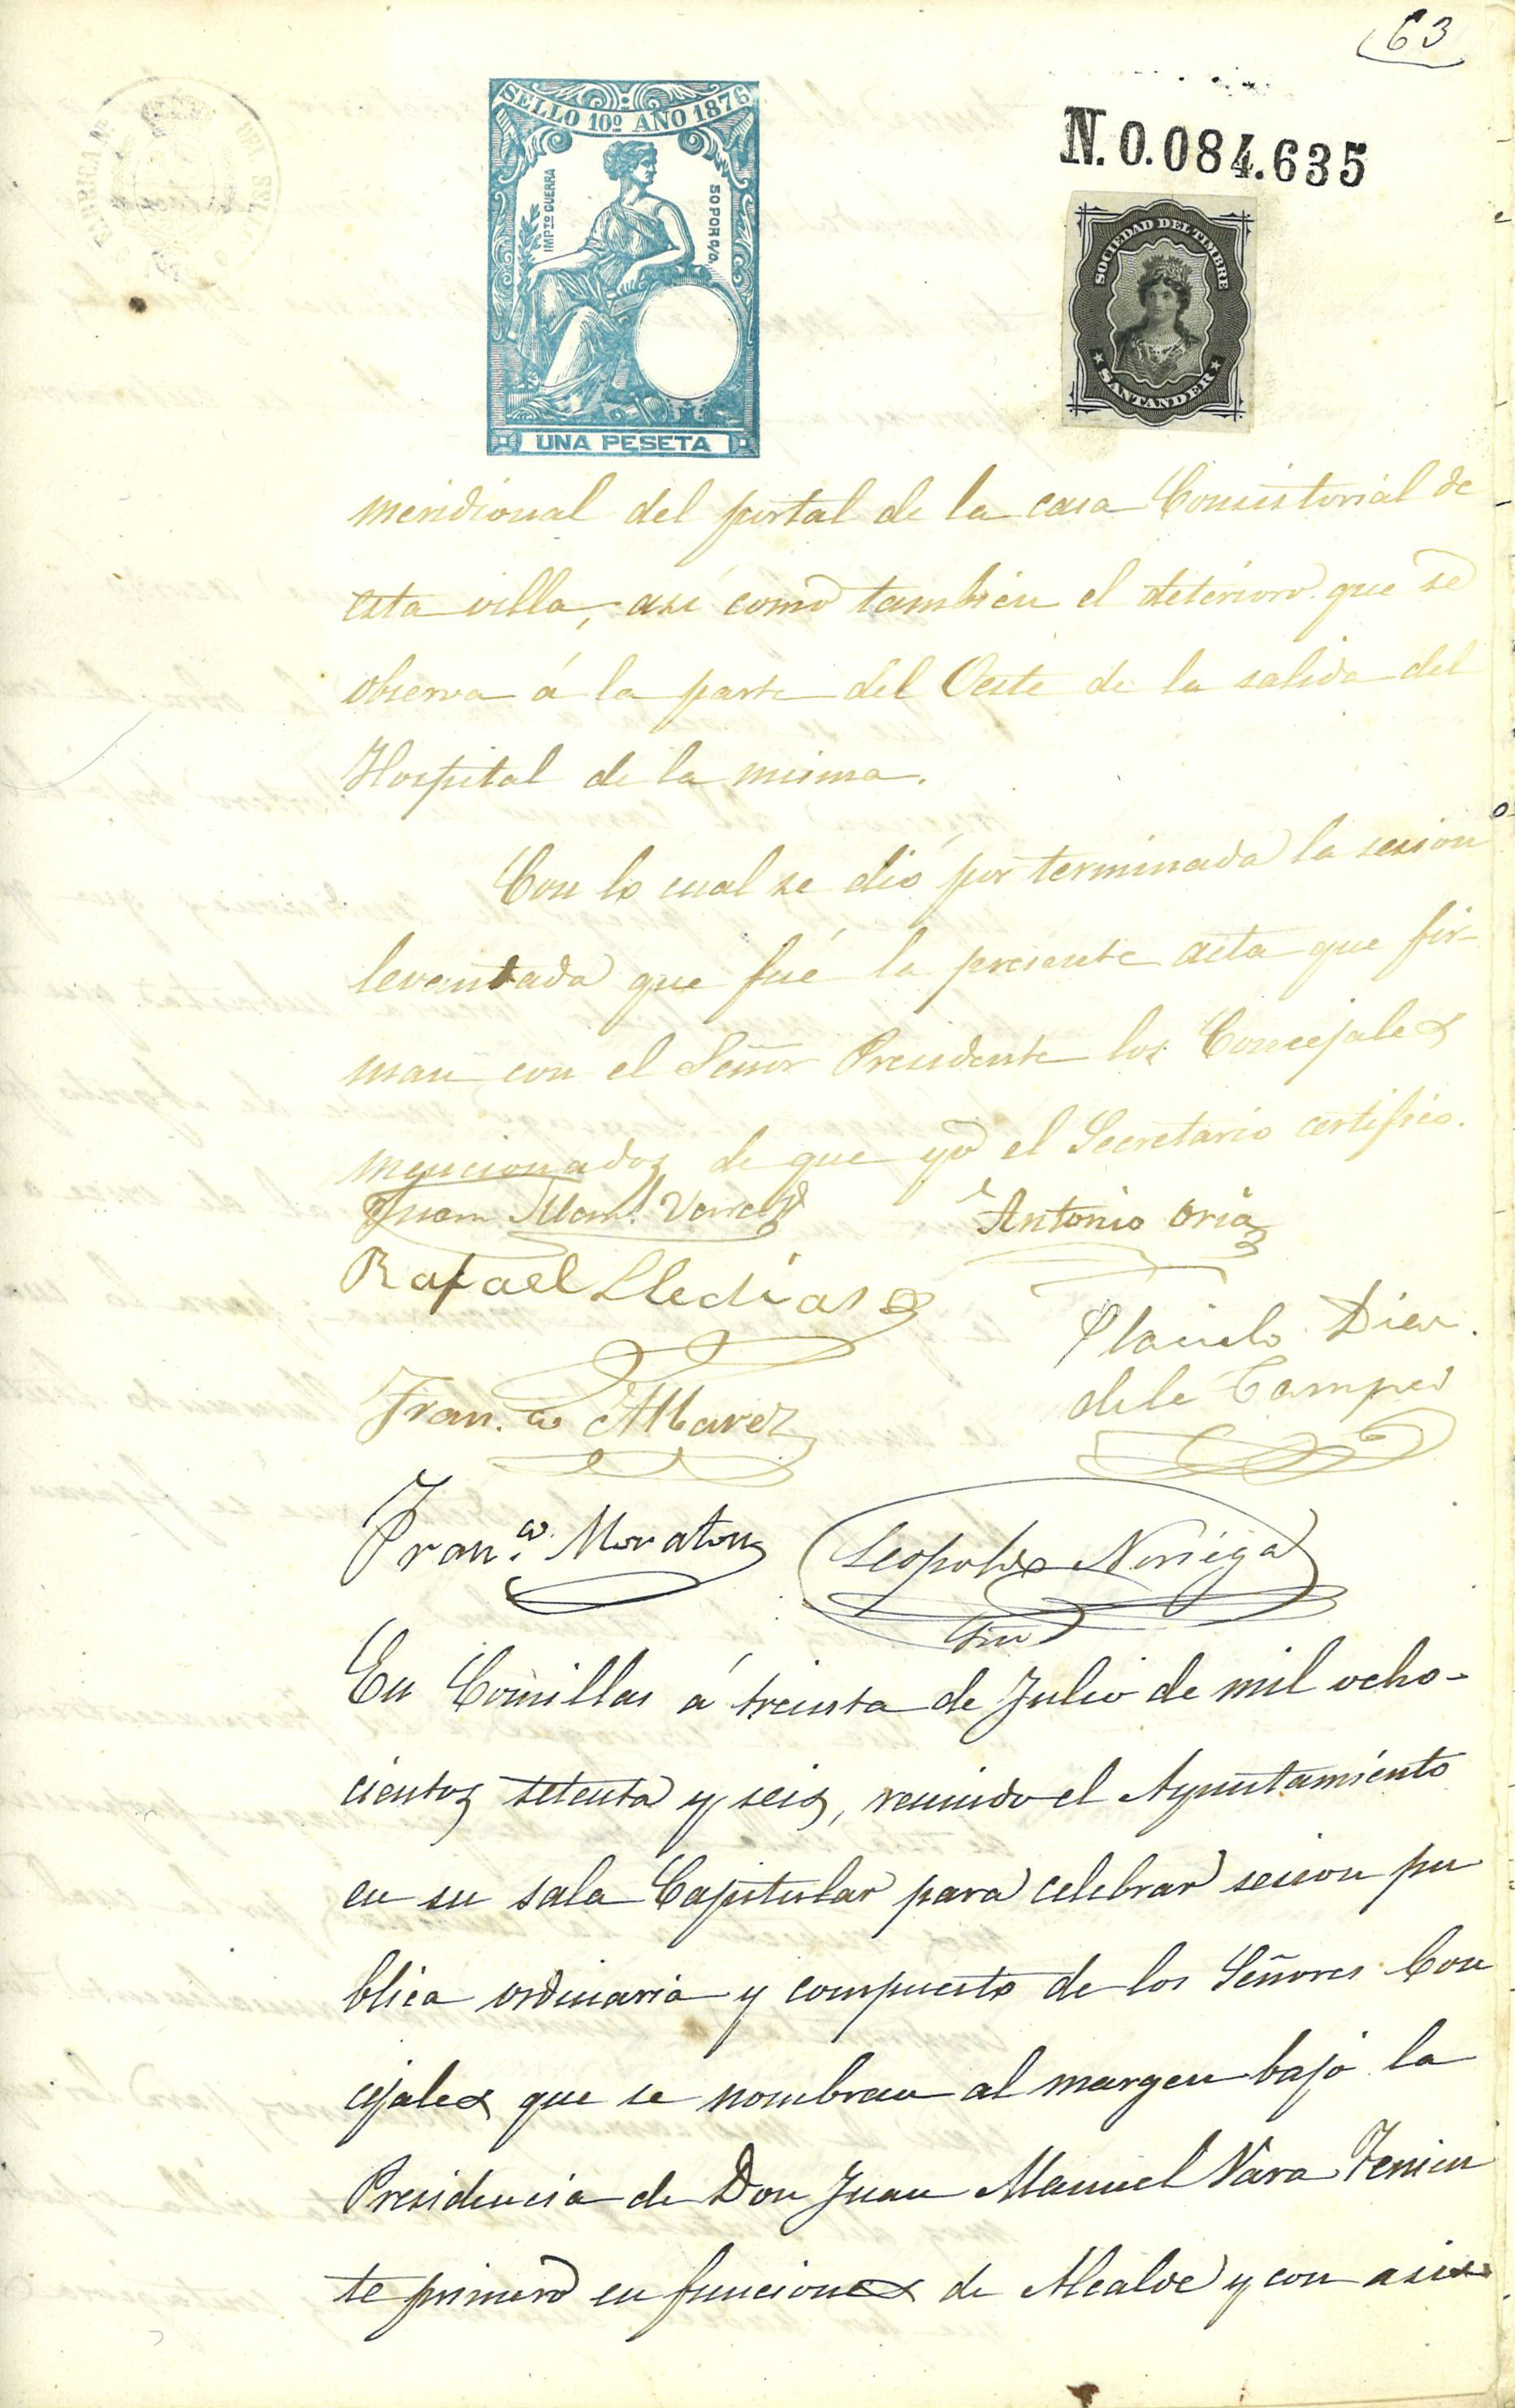 63
SELLO 10º AÑO 1876
IMPTO GUERRA
50 POR %
UNA PESETA
N. 0.084.635
SOCIEDAD DEL TIMBRE
SANTANDER
meridional del portal de la casa Consistorial de
esta villa, así como tambien el deterioro que se
observa á la parte del Oeste de la salida del
Hospital de la misma.
Con lo cual se dió por terminada la sesion
levantada que fué la presente acta que fir-
man con el Señor Presidente los Concejales
mencionados de que yo el Secretario certifico.
Juan Man.l
Antonio Oria
Rafael Lledias
Placido Diaz
de la Campa
Fran.co Albarez
Fran.co Moraton
Leopoldo Noriega
En Comillas á treinta de Julio de mil ocho-
cientos setenta y seis, reunido el Ayuntamiento
en su sala Capitular para celebrar sesion pu
blica ordinaria y compuesto de los Señores Con
cejales que se nombran al margen bajo la
Presidencia de Don Juan Manuel Vara Tenien
te primero en funciones de Alcalde y con asis